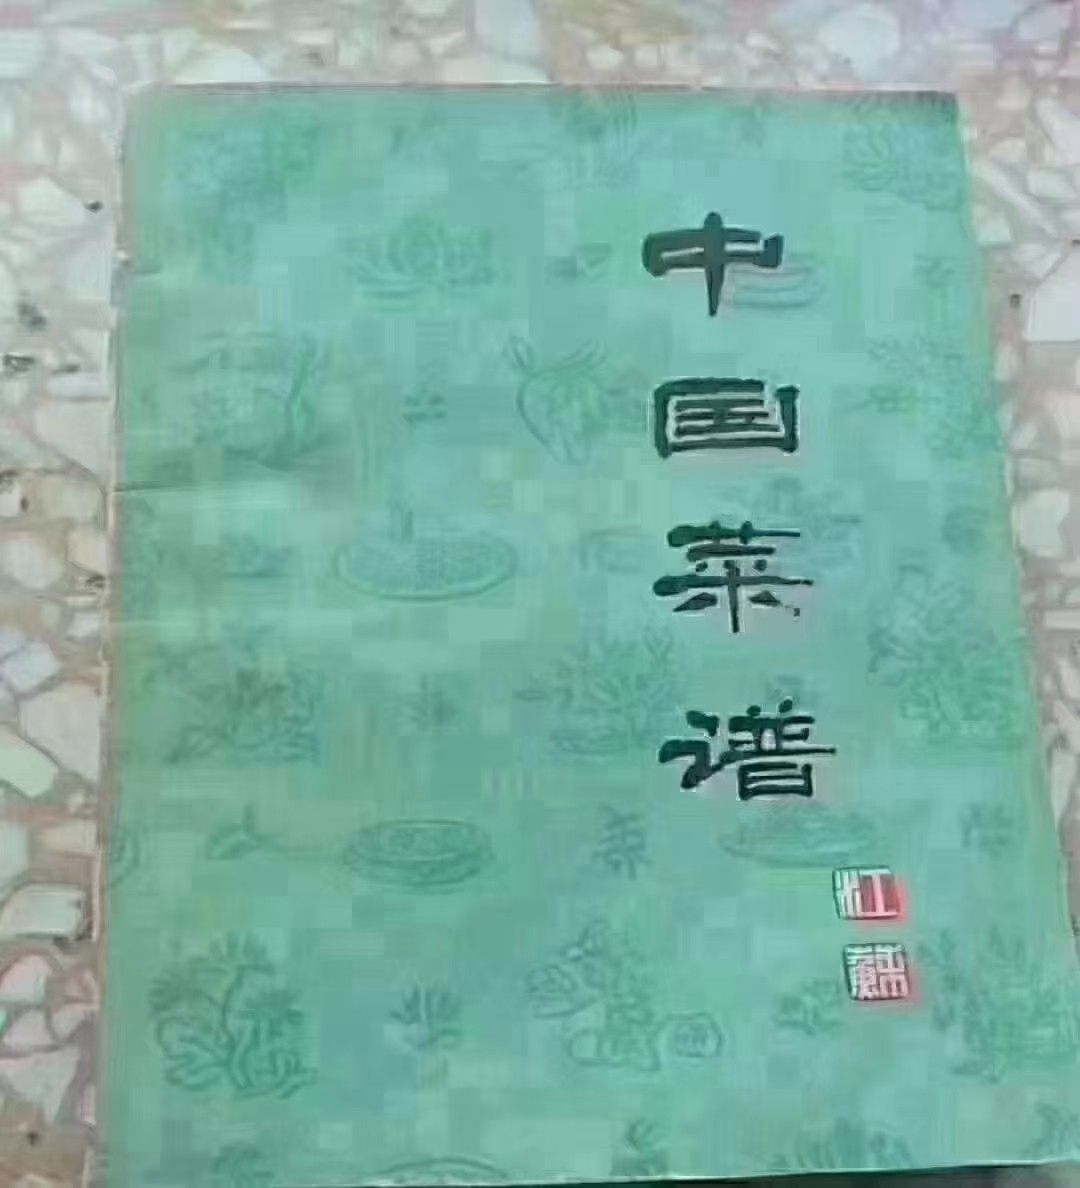 中国菜谱
江